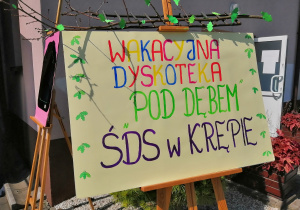 WAKACYJNA
DYSKOTEKA
POD DĘBEM
ŚDS w KRĘPIE